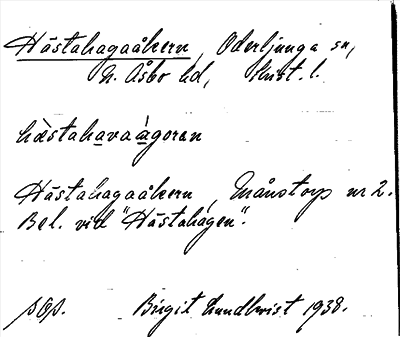 Hästahagaåkern, Oderljunga sn,
N. Åsbo hd, Krist. l.
hæ̀stahava ̀ågoren
Hästahagaåkern, Månstorp nr 2.
Bel. vid "Hästahagen".
Birgit Lundkvist 1938.